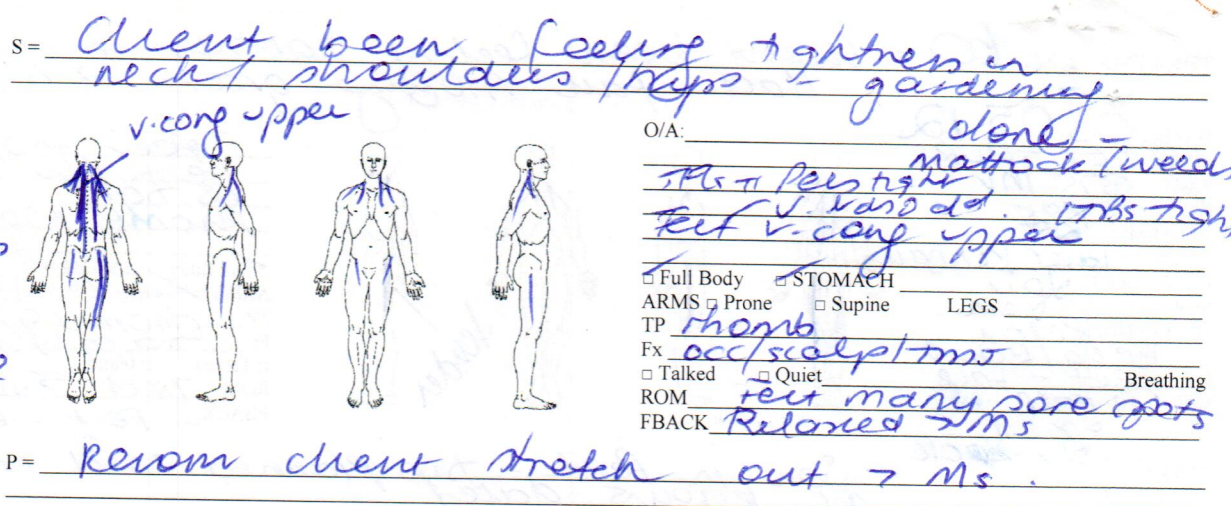 S = Client been feeling tightness in
neck / shoulders / traps - gardening
done -
mattock / weeds
v. cong upper
O/A:
tight
ITBs tight
Felt v. cong upper
□ Full Body □ STOMACH
ARMS □ Prone □ Supine LEGS
TP rhomb
Fx occ/scalp/TMJ
□ Talked □ Quiet Breathing
ROM Felt many sore spots
FBACK Relaxed > Ms
P = Recom client stretch out > Ms.